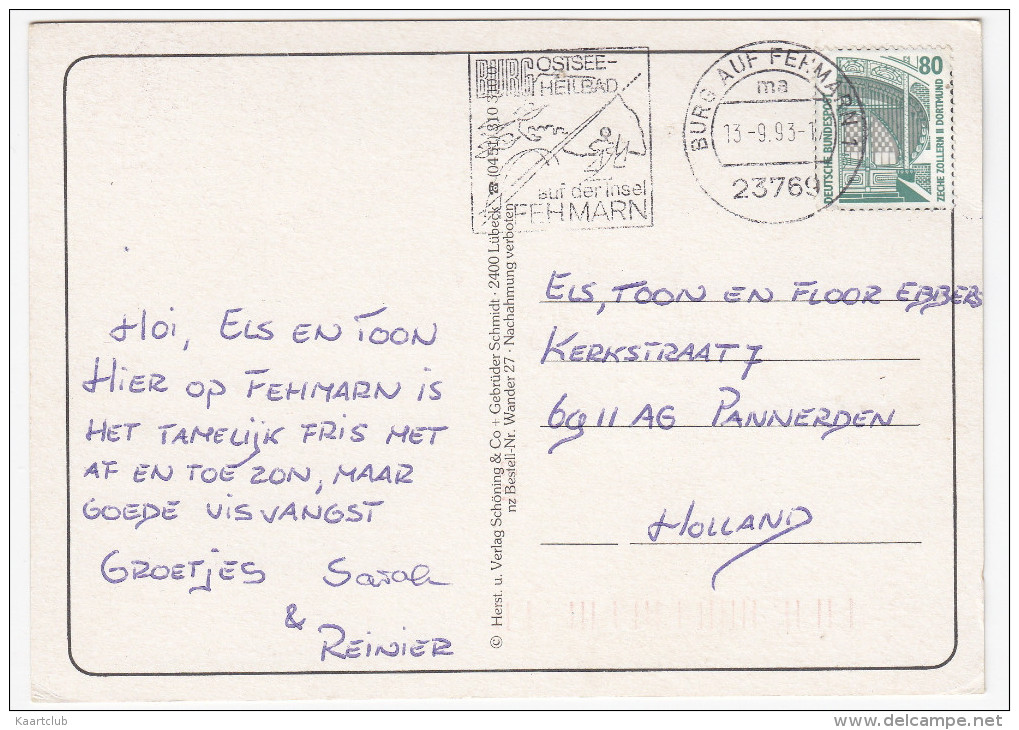 BURG OSTSEE-
HEILBAD
auf der Insel
FEHMARN
BURG AUF FEHMARN 1
ma
13.-9.93-1
23769
80
DEUTSCHE BUNDESPOST
ZECHE ZOLLERN II DORTMUND
Hoi, ELS EN TOON
HIER OP FEHMARN IS
HET TAMELIJK FRIS MET
AF EN TOE ZON, MAAR
GOEDE VISVANGST
GROETJES Sarah
&
REINIER
© Herst. u. Verlag Schöning & Co + Gebrüder Schmidt · 2400 Lübeck ☎ (0451) 310 310
nz Bestell-Nr. Wander 27 · Nachahmung verboten
ELS, TOON EN FLOOR EBBERS
KERKSTRAAT 7
6911 AG PANNERDEN
HOLLAND
Kaartclub
www.delcampe.net